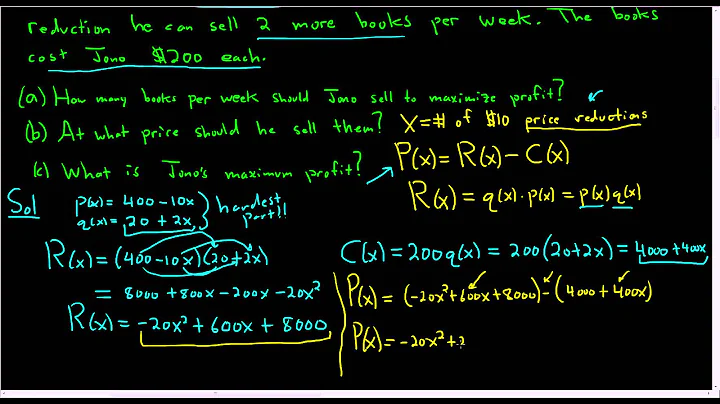 reduction he can sell 2 more books per week. The books
cost Jono $200 each.
(a) How many books per week should Jono sell to maximize profit?
(b) At what price should he sell them?
X = # of $10 price reductions
(c) What is Jono's maximum profit?
P(x) = R(x) - C(x)
R(x) = q(x)·p(x) = p(x)q(x)
Sol
p(x) = 400 - 10x
q(x) = 20 + 2x
hardest
part!!
R(x) = (400-10x)(20+2x)
= 8000 + 800x - 200x - 20x²
R(x) = -20x² + 600x + 8000
C(x) = 200q(x) = 200(20+2x) = 4000 + 400x
P(x) = (-20x² + 600x + 8000) - (4000 + 400x)
P(x) = -20x² + 2